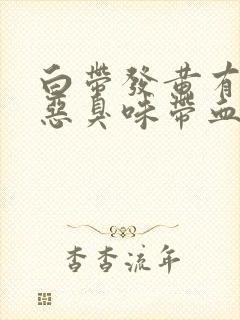 白帶發黃有
惡臭味帶血
杳杳流年